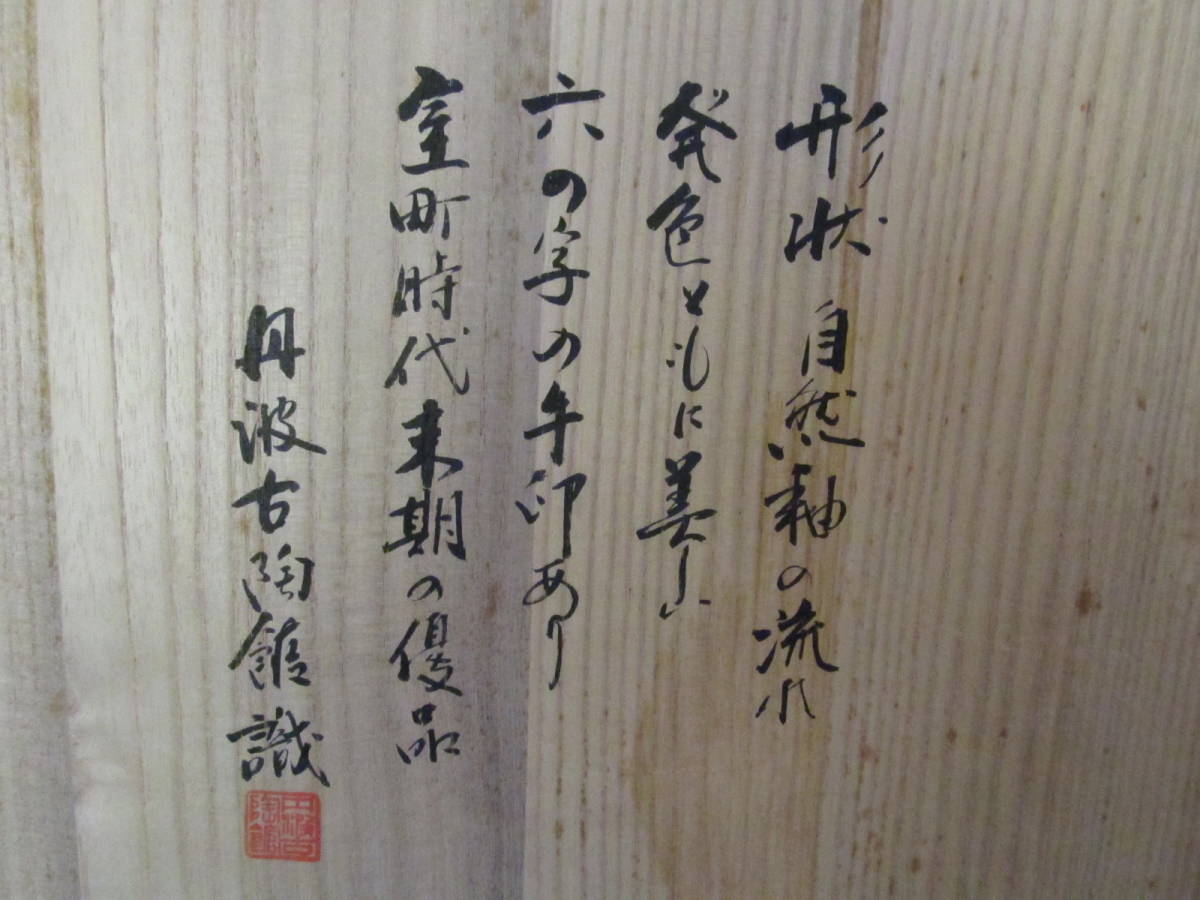 形状 自然釉の流れ
発色ともに美しい
六の字の手印あり
室町時代末期の優品
丹波古陶館識